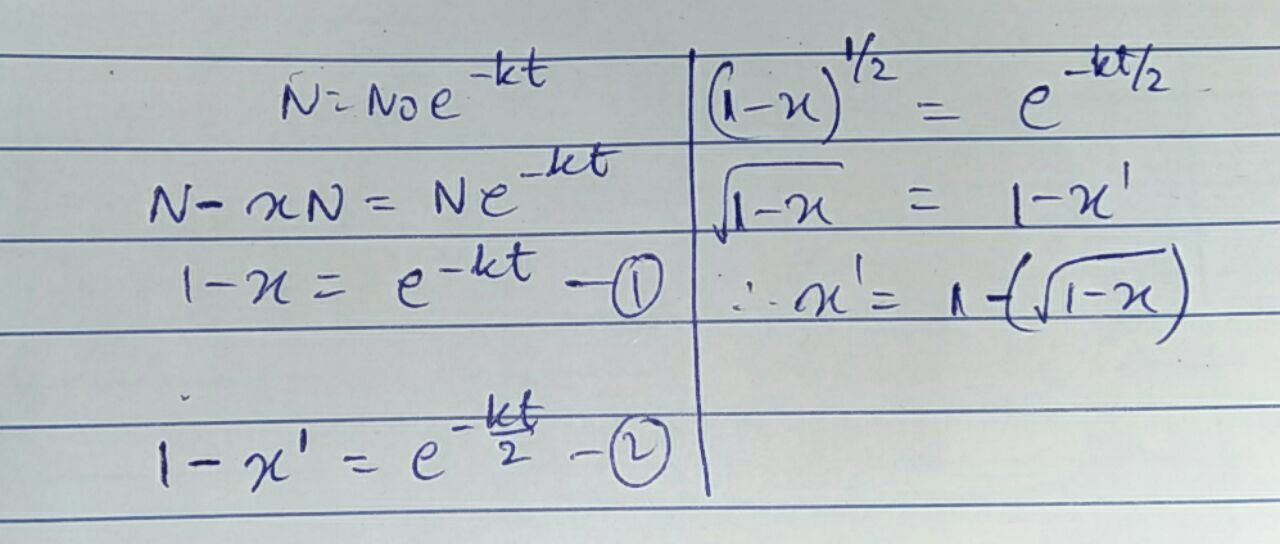 N = N₀e^-kt
N - xN = Ne^-kt
1-x = e^-kt - ①
1-x' = e^-kt/2 - ②
(1-x)^1/2 = e^-kt/2
√(1-x) = 1-x'
∴ x' = 1-(√(1-x))